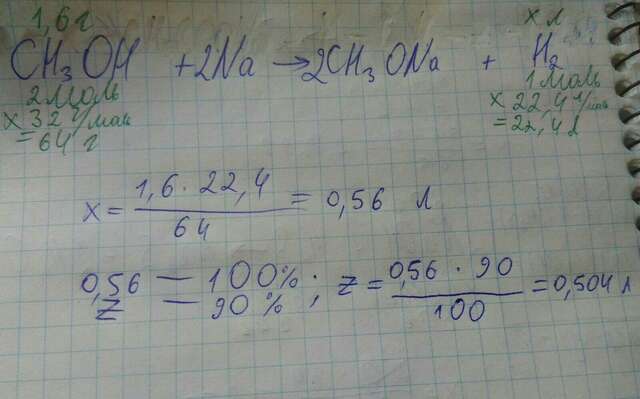 1,6г x л
CH₃OH + 2Na → 2CH₃ONa + H₂
2 моль 1 моль
x 32 г/моль x 22,4 л/моль
= 64 г = 22,4 л
x = 1,6 · 22,4 / 64 = 0,56 л
0,56 — 100% ; z = 0,56 · 90 / 100 = 0,504 л
z — 90%